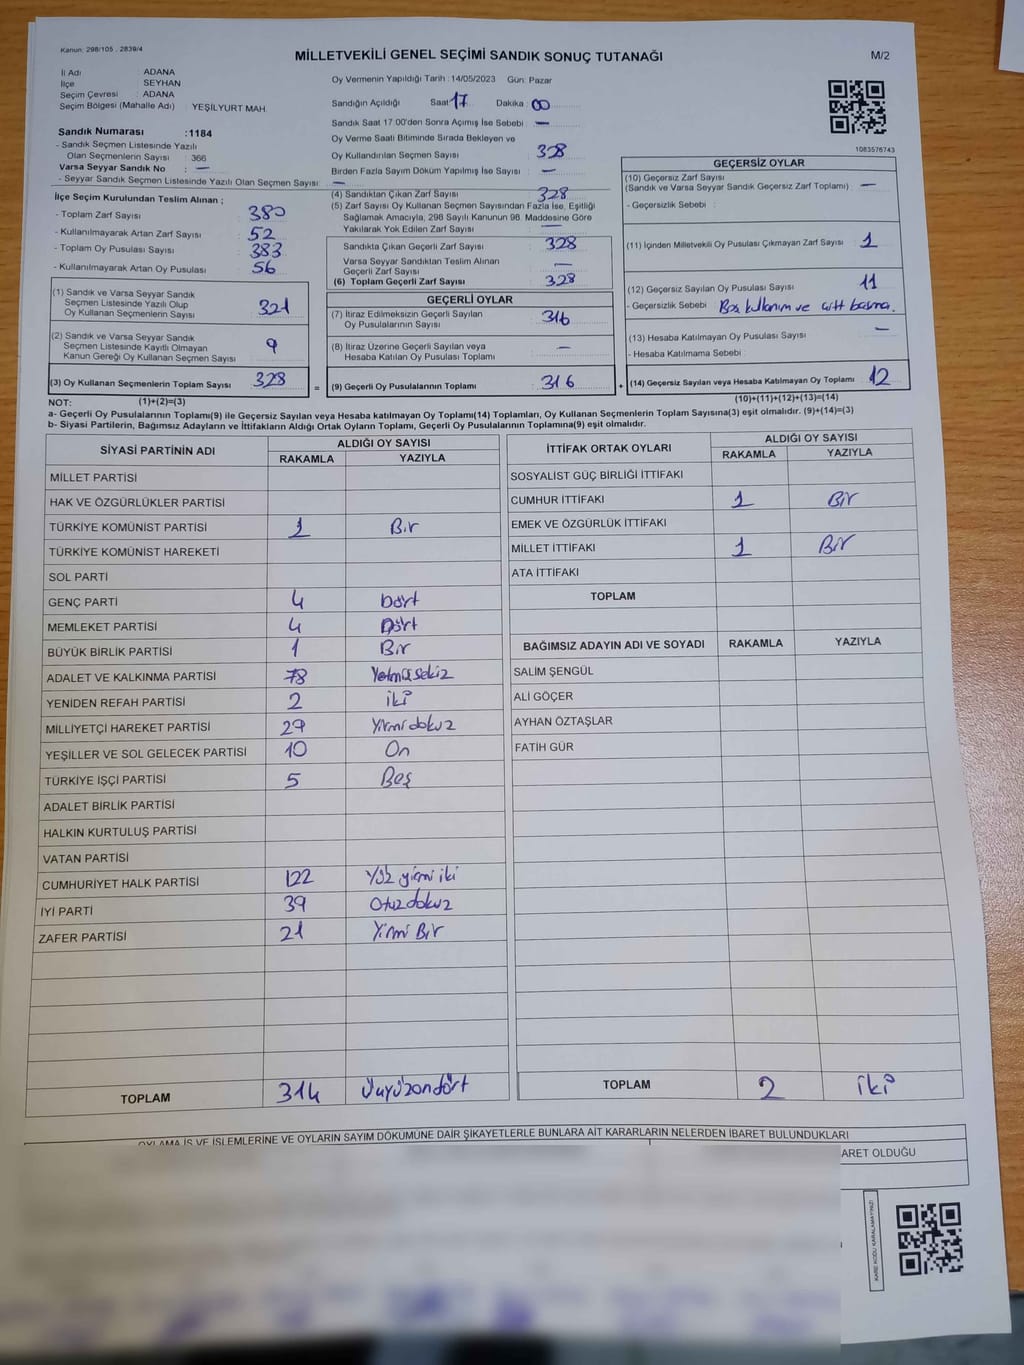 Kanun: 298/105 , 2839/4
MİLLETVEKİLİ GENEL SEÇİMİ SANDIK SONUÇ TUTANAĞI
M/2
İl Adı ADANA
İlçe SEYHAN
Seçim Çevresi : ADANA
Seçim Bölgesi (Mahalle Adı) : YEŞİLYURT MAH.
Sandık Numarası :1184
- Sandık Seçmen Listesinde Yazılı
Olan Seçmenlerin Sayısı : 366
Varsa Seyyar Sandık No : —
- Seyyar Sandık Seçmen Listesinde Yazılı Olan Seçmen Sayısı: —
İlçe Seçim Kurulundan Teslim Alınan ;
- Toplam Zarf Sayısı : 380
- Kullanılmayarak Artan Zarf Sayısı : 52
- Toplam Oy Pusulası Sayısı : 383
- Kullanılmayarak Artan Oy Pusulası : 56
(1) Sandık ve Varsa Seyyar Sandık
Seçmen Listesinde Yazılı Olup
Oy Kullanan Seçmenlerin Sayısı 321
(2) Sandık ve Varsa Seyyar Sandık
Seçmen Listesinde Kayıtlı Olmayan
Kanun Gereği Oy Kullanan Seçmen Sayısı 9
(3) Oy Kullanan Seçmenlerin Toplam Sayısı 328
Oy Vermenin Yapıldığı Tarih : 14/05/2023 Gün: Pazar
Sandığın Açıldığı Saat 17 Dakika : 00
Sandık Saat 17.00'den Sonra Açımış İse Sebebi : —
Oy Verme Saati Bitiminde Sırada Bekleyen ve
Oy Kullandırılan Seçmen Sayısı : 328
Birden Fazla Sayım Döküm Yapılmış İse Sayısı : —
(4) Sandıktan Çıkan Zarf Sayısı : 328
(5) Zarf Sayısı Oy Kullanan Seçmen Sayısından Fazla İse, Eşitliği
Sağlamak Amacıyla, 298 Sayılı Kanunun 98. Maddesine Göre
Yakılarak Yok Edilen Zarf Sayısı : —
Sandıkta Çıkan Geçerli Zarf Sayısı : 328
Varsa Seyyar Sandıktan Teslim Alınan
Geçerli Zarf Sayısı : —
(6) Toplam Geçerli Zarf Sayısı : 328
GEÇERLİ OYLAR
(7) İtiraz Edilmeksizin Geçerli Sayılan
Oy Pusulalarının Sayısı : 316
(8) İtiraz Üzerine Geçerli Sayılan veya
Hesaba Katılan Oy Pusulası Toplamı : —
= (9) Geçerli Oy Pusulalarının Toplamı : 316
1083576743
GEÇERSİZ OYLAR
(10) Geçersiz Zarf Sayısı
(Sandık ve Varsa Seyyar Sandık Geçersiz Zarf Toplamı) : —
- Geçersizlik Sebebi :
(11) İçinden Milletvekili Oy Pusulası Çıkmayan Zarf Sayısı : 1
(12) Geçersiz Sayılan Oy Pusulası Sayısı : 11
- Geçersizlik Sebebi : Boş kullanım ve çift basma.
(13) Hesaba Katılmayan Oy Pusulası Sayısı : —
- Hesaba Katılmama Sebebi :
+ (14) Geçersiz Sayılan veya Hesaba Katılmayan Oy Toplamı : 12
NOT: (1)+(2)=(3) (10)+(11)+(12)+(13)=(14)
a- Geçerli Oy Pusulalarının Toplamı(9) ile Geçersiz Sayılan veya Hesaba katılmayan Oy Toplamı(14) Toplamları, Oy Kullanan Seçmenlerin Toplam Sayısına(3) eşit olmalıdır. (9)+(14)=(3)
b- Siyasi Partilerin, Bağımsız Adayların ve İttifakların Aldığı Ortak Oyların Toplamı, Geçerli Oy Pusulalarının Toplamına(9) eşit olmalıdır.
SİYASİ PARTİNİN ADI ALDIĞI OY SAYISI
RAKAMLA YAZIYLA
MİLLET PARTİSİ
HAK VE ÖZGÜRLÜKLER PARTİSİ
TÜRKİYE KOMÜNİST PARTİSİ 1 Bir
TÜRKİYE KOMÜNİST HAREKETİ
SOL PARTİ
GENÇ PARTİ 4 Dört
MEMLEKET PARTİSİ 4 Dört
BÜYÜK BİRLİK PARTİSİ 1 Bir
ADALET VE KALKINMA PARTİSİ 78 Yetmişsekiz
YENİDEN REFAH PARTİSİ 2 iki
MİLLİYETÇİ HAREKET PARTİSİ 29 Yirmi dokuz
YEŞİLLER VE SOL GELECEK PARTİSİ 10 On
TÜRKİYE İŞÇİ PARTİSİ 5 Beş
ADALET BİRLİK PARTİSİ
HALKIN KURTULUŞ PARTİSİ
VATAN PARTİSİ
CUMHURİYET HALK PARTİSİ 122 Yüz yirmi iki
İYİ PARTİ 39 Otuz dokuz
ZAFER PARTİSİ 21 Yirmi Bir
TOPLAM 314 Üçyüzondört
İTTİFAK ORTAK OYLARI ALDIĞI OY SAYISI
RAKAMLA YAZIYLA
SOSYALİST GÜÇ BİRLİĞİ İTTİFAKI
CUMHUR İTTİFAKI 1 Bir
EMEK VE ÖZGÜRLÜK İTTİFAKI
MİLLET İTTİFAKI 1 Bir
ATA İTTİFAKI
TOPLAM
BAĞIMSIZ ADAYIN ADI VE SOYADI RAKAMLA YAZIYLA
SALİM ŞENGÜL
ALİ GÖÇER
AYHAN ÖZTAŞLAR
FATİH GÜR
TOPLAM 2 iki
OYLAMA İŞ VE İŞLEMLERİNE VE OYLARIN SAYIM DÖKÜMÜNE DAİR ŞİKAYETLERLE BUNLARA AİT KARARLARIN NELERDEN İBARET BULUNDUKLARI
ARET OLDUĞU
KARE KODU KARALAMAYINIZ!